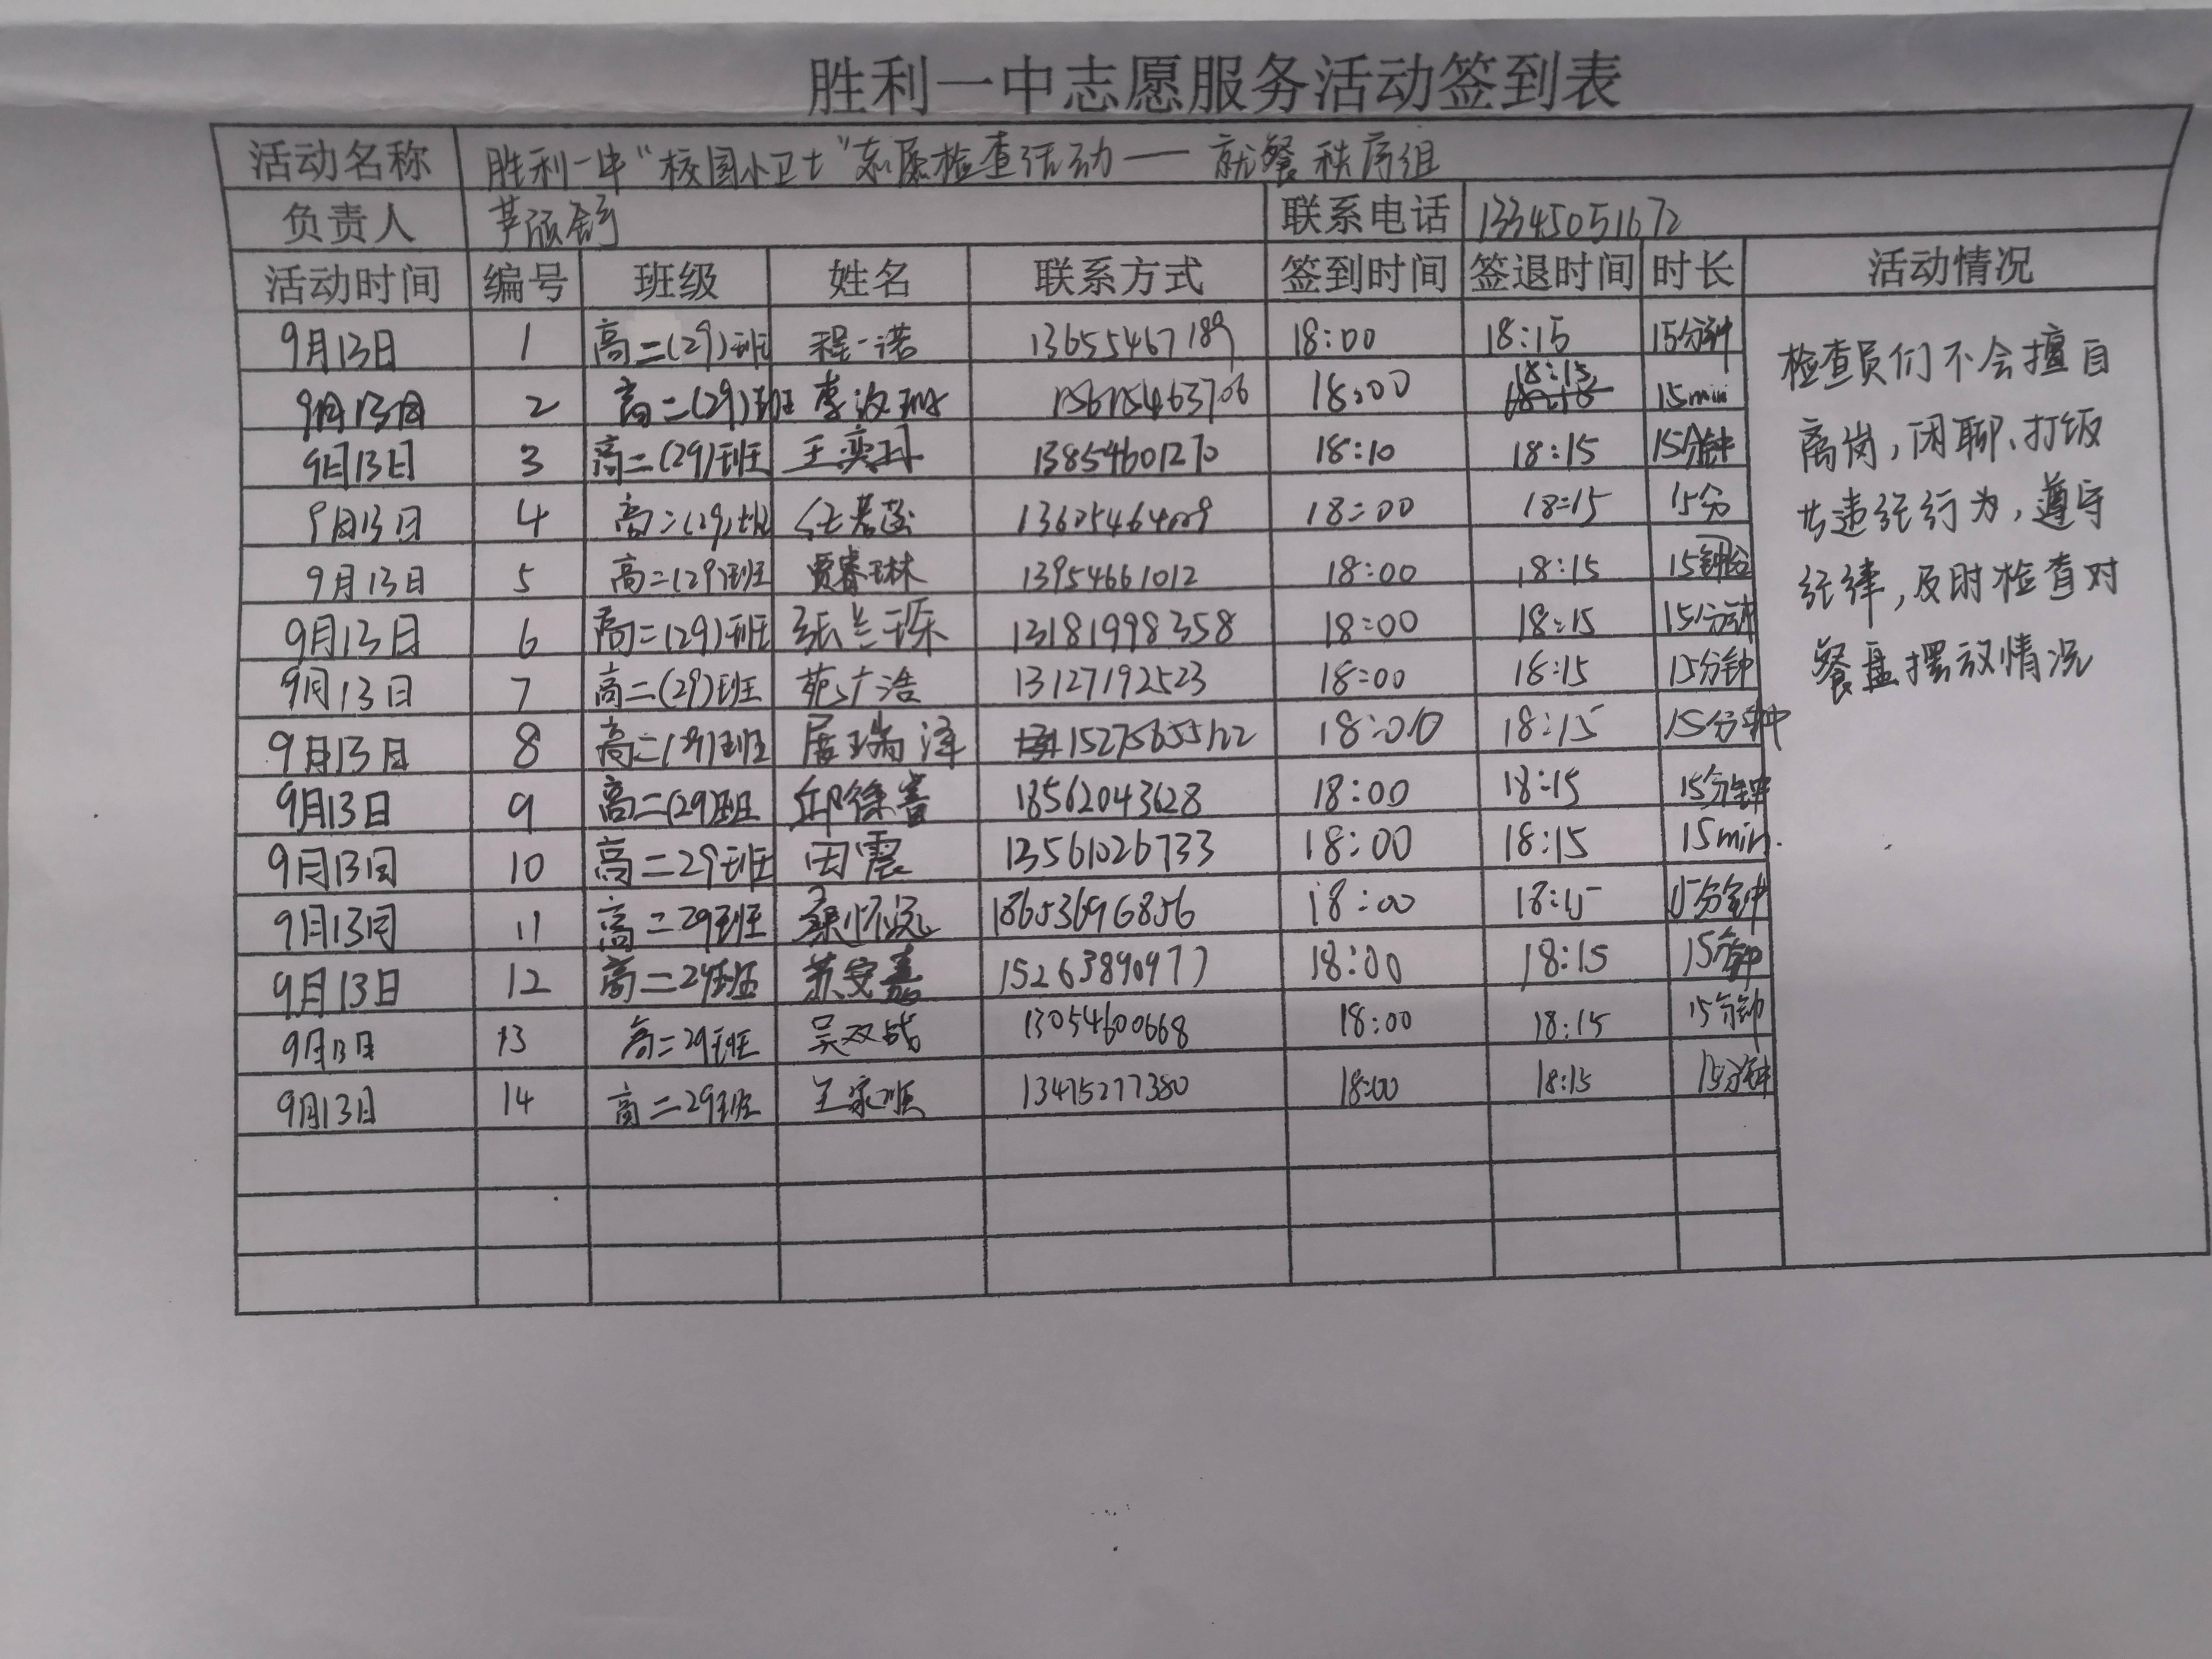 胜利一中志愿服务活动签到表
活动名称 胜利一中“校园小卫士”志愿检查活动——就餐秩序组
负责人 联系电话 13345051672
活动时间 编号 班级 姓名 联系方式 签到时间 签退时间 时长 活动情况
9月13日 1 高二(29)班 程一诺 13655467189 18:00 18:15 15分钟
9月13日 2 高二(29)班 18:00 18:15 15min
9月13日 3 高二(29)班 13854601270 18:10 18:15 15分钟
9月13日 4 高二(29)班 18:00 18:15 15分
9月13日 5 高二(29)班 贾睿琳 13954661012 18:00 18:15
9月13日 6 高二(29)班 张兰琛 13181998358 18:00 18:15 15分钟
9月13日 7 高二(29)班 苑广浩 13127192523 18:00 18:15 15分钟
9月13日 8 高二(29)班 展瑞泽 18:00 18:15 15分钟
9月13日 9 高二(29)班 18562043628 18:00 18:15 15分钟
9月13日 10 高二29班 田震 13561026733 18:00 18:15 15min.
9月13日 11 高二29班 18653696856 18:00 18:15 15分钟
9月13日 12 高二29班 15263890977 18:00 18:15 15分钟
9月13日 13 高二29班 13054600668 18:00 18:15 15分钟
9月13日 14 高二29班 王家顺 13475277380 18:00 18:15 15分钟
检查员们不会擅自
离岗,闲聊、打饭
等违纪行为,遵守
纪律,及时检查对
餐盘摆放情况